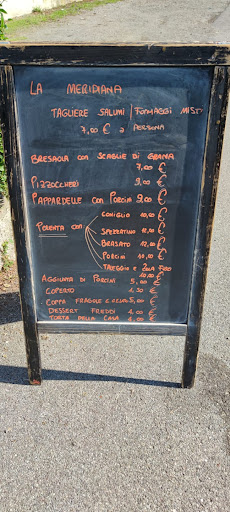 LA MERIDIANA
TAGLIERE SALUMI / FORMAGGI MISTI
7,00 € a PERSONA
BRESAOLA CON SCAGLIE DI GRANA
7,00 €
PIZZOCCHERI 9,00 €
PAPPARDELLE CON PORCINI 9,00 €
POLENTA CON
CONIGLIO 10,00 €
SPEZZATINO 10,00 €
BRASATO 12,00 €
PORCINI 10,00 €
TALEGGIO E ZOLA FUSO
10,00 €
AGGIUNTA DI PORCINI 5,00 €
COPERTO 1,50 €
COPPA FRAGOLE E GELATO 5,00 €
DESSERT FREDDI 4,00 €
TORTA DELLA CASA 4,00 €